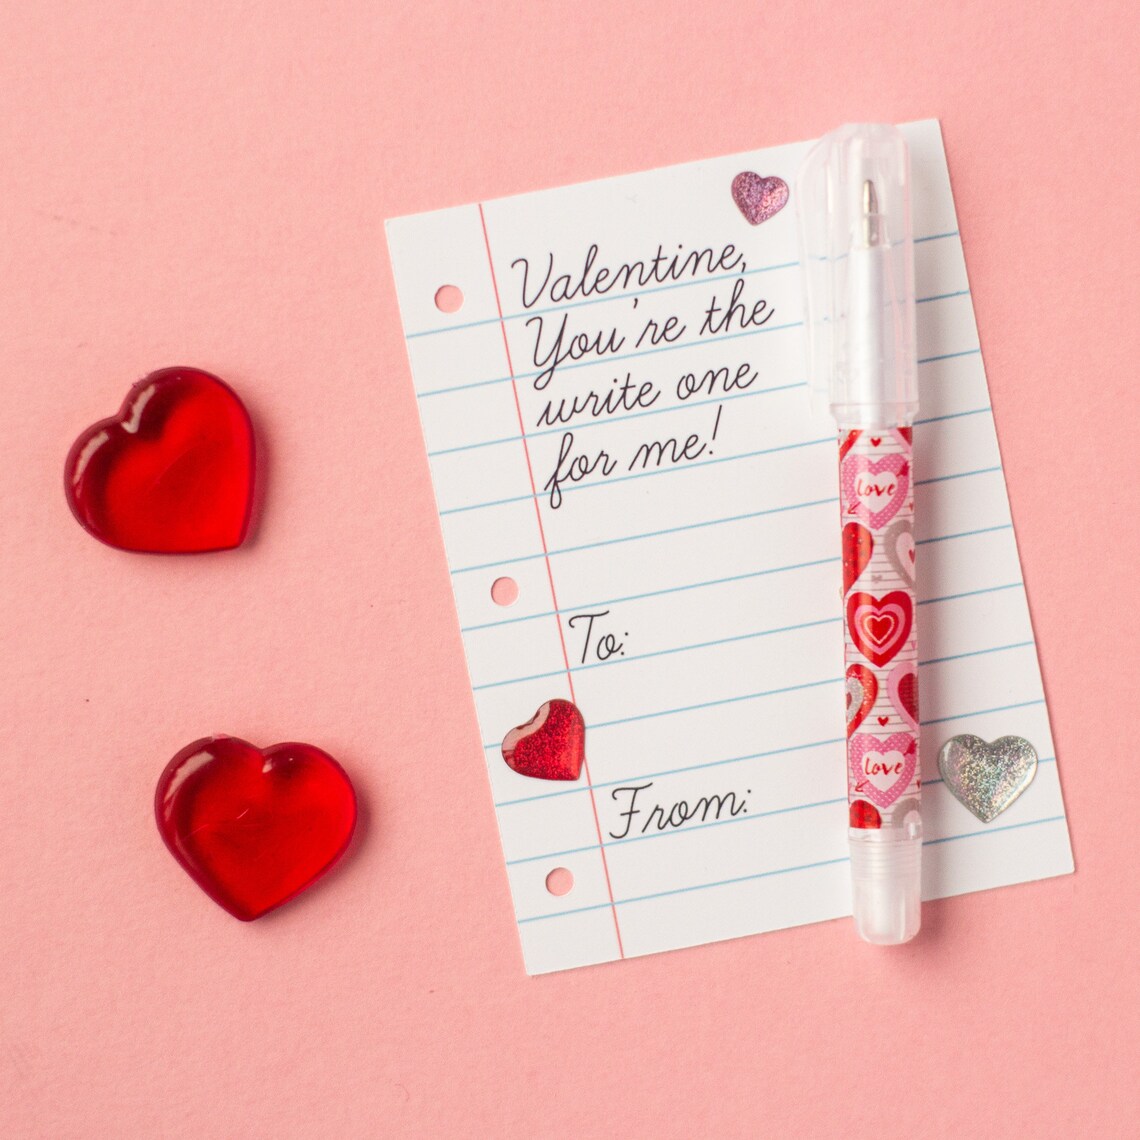 Valentine,
You're the
write one
for me!
To:
From:
love
love